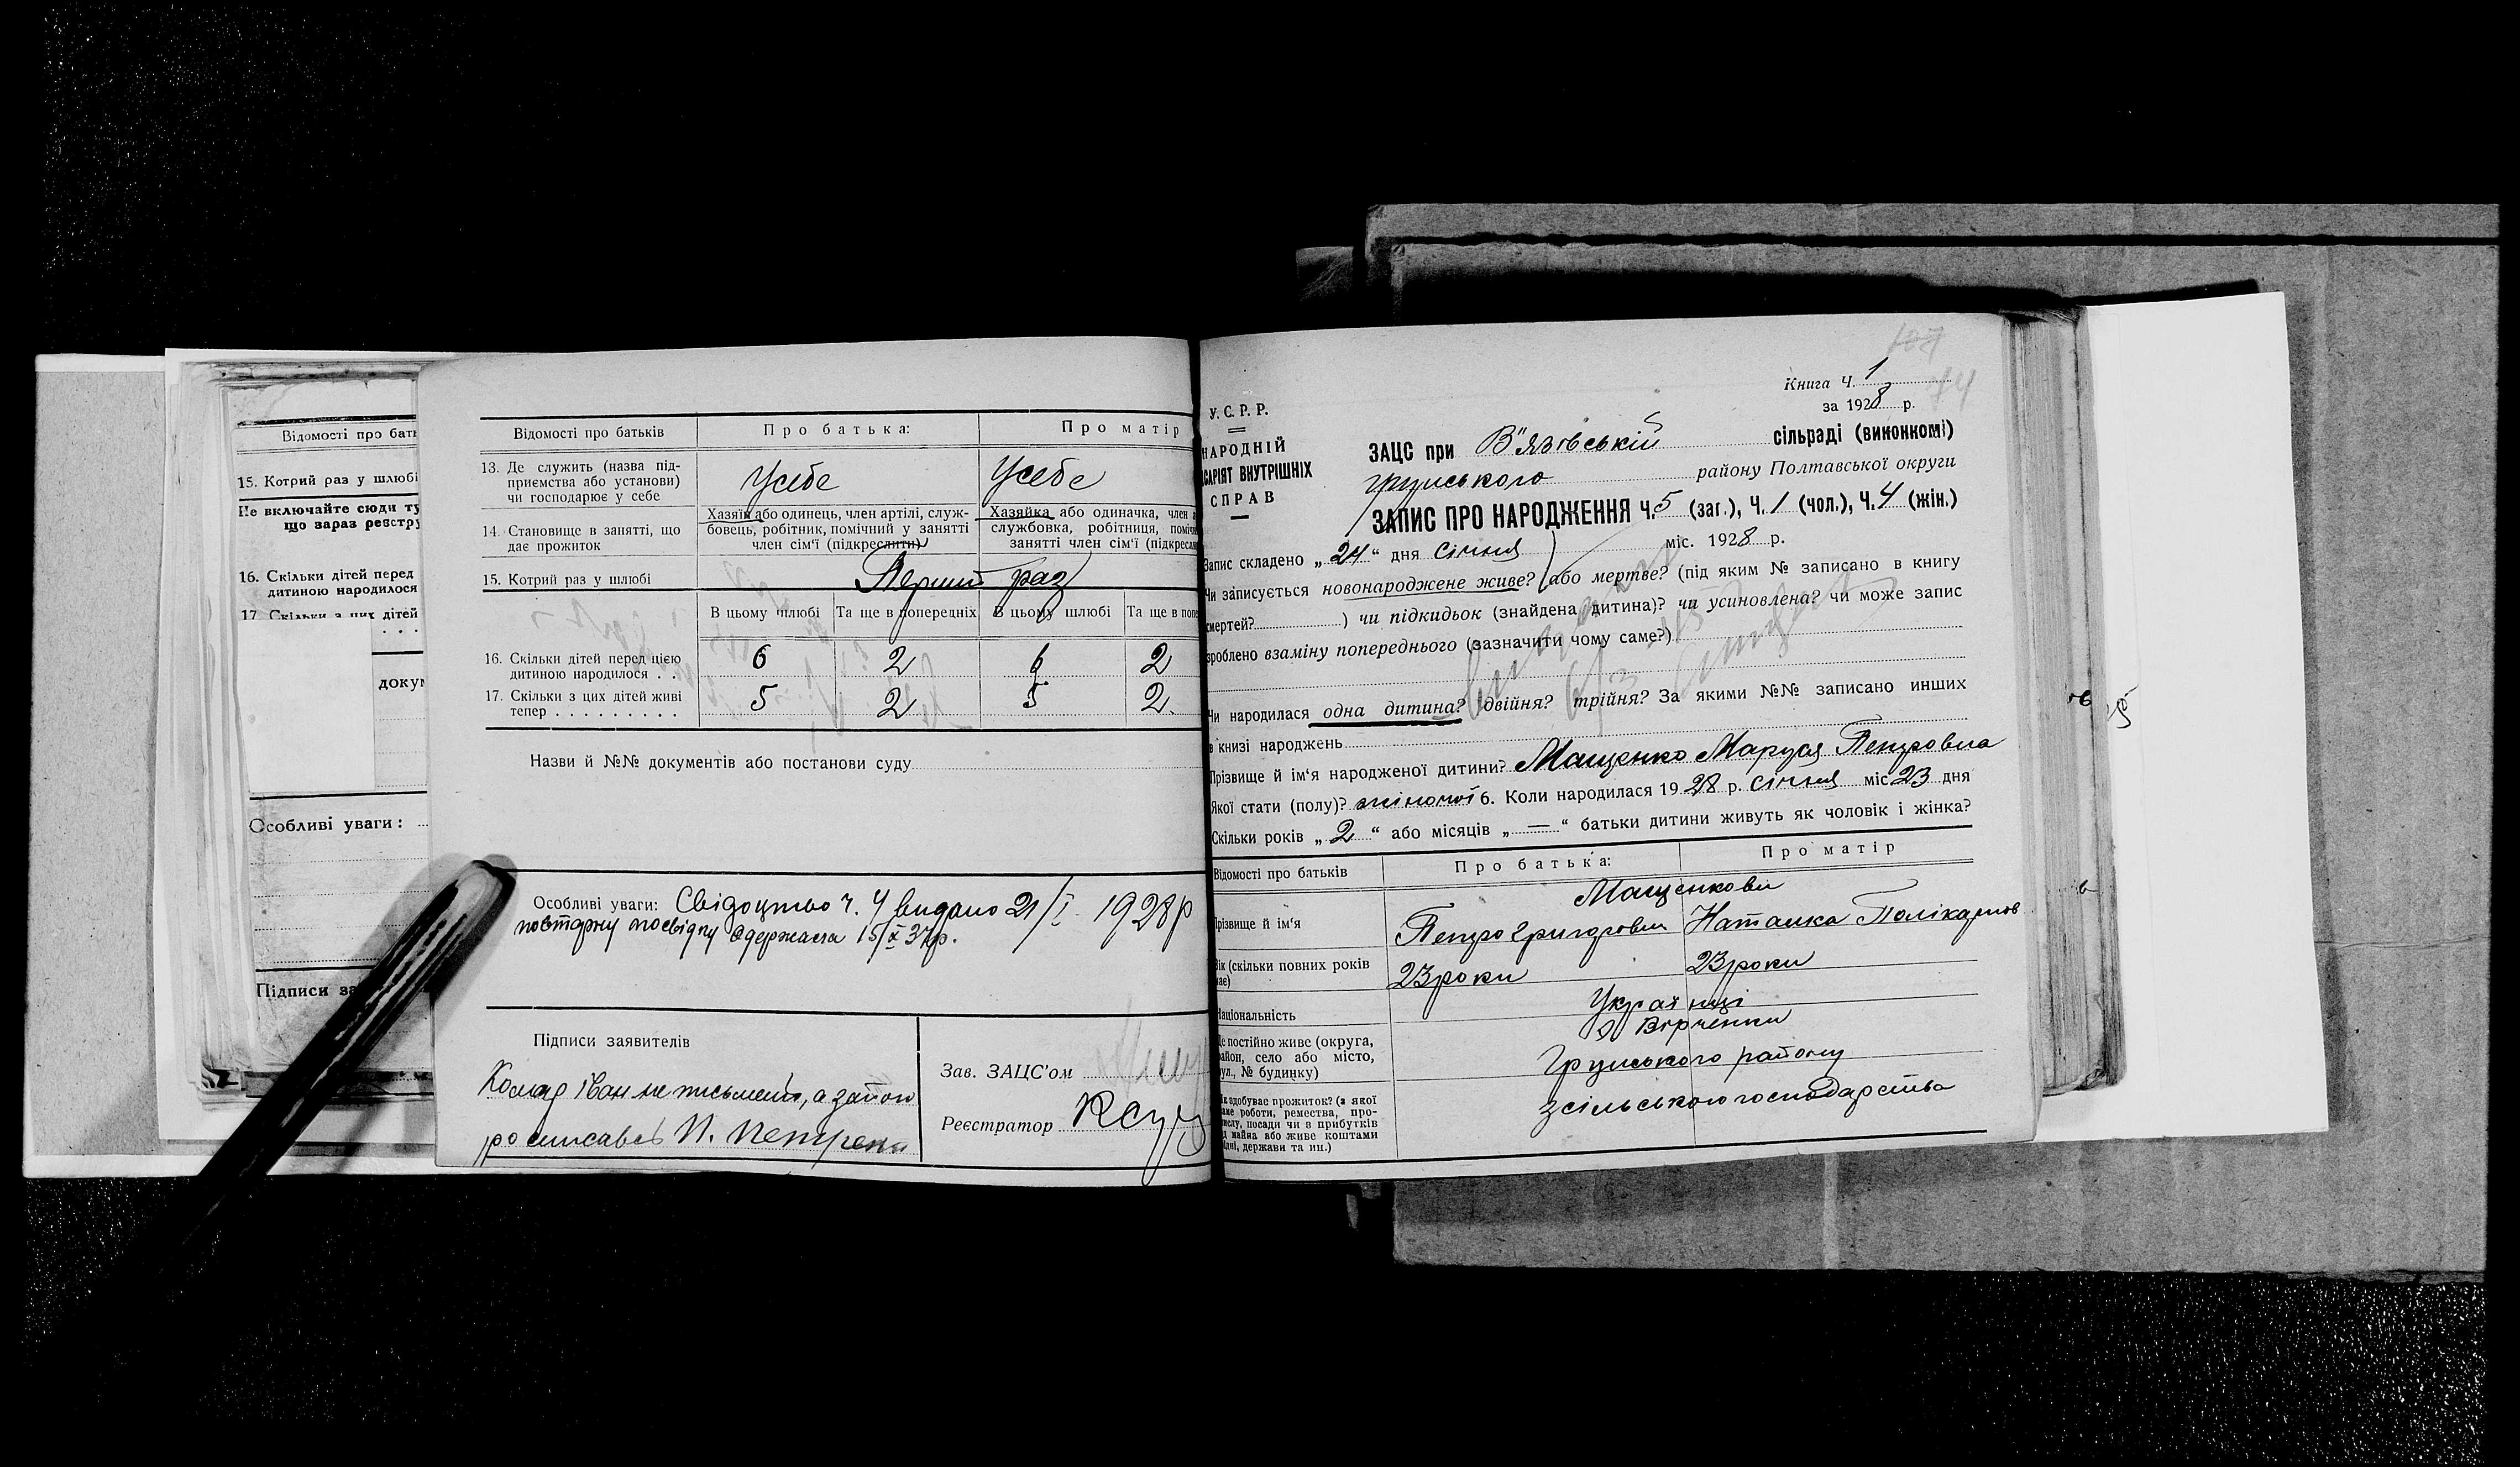 Відомості про бать
15. Котрий раз у шлюбі
Не включайте сюди ту
що зараз реєстру
16. Скільки дітей перед
дитиною народилося
17. Скільки з них дітей
. . .
докум
Особливі уваги:
Підписи за
Відомості про батьків
Про батька:
Про матір
13. Де служить (назва під-
приємства або установи)
чи господарює у себе
У себе
У себе
14. Становище в занятті, що
дає прожиток
Хазяїн або одинець, член артілі, служ-
бовець, робітник, помічний у занятті
член сім'ї (підкреслити)
Хазяйка або одиначка, член а
службовка, робітниця, поміч
занятті член сім'ї (підкресли
15. Котрий раз у шлюбі
Перший раз
В цьому шлюбі
Та ще в попередніх
В цьому шлюбі
Та ще в попе
16. Скільки дітей перед цією
дитиною народилося . .
6 2 6 2
17. Скільки з цих дітей живі
тепер . . . . . . . . .
5 2 5 2
Назви й №№ документів або постанови суду
Особливі уваги: Свідоцтво ч. 4 видано 21/I 1928р
повторну посвідку одержала 15/X 37р.
Підписи заявителів
Комар Іван не письмений, а за його
росписавсь П. Петренко
Зав. ЗАЦС'ом
Реєстратор
107
Книга Ч. 1
44
за 1928 р.
У.С.Р.Р.
НАРОДНІЙ
САРІЯТ ВНУТРІШНІХ
СПРАВ
ЗАЦС при В"язівській сільраді (виконкомі)
Грунського району Полтавської округи
ЗАПИС ПРО НАРОДЖЕННЯ Ч. 5 (заг.), Ч. 1 (чол.), Ч. 4 (жін.)
Запис складено „24“ дня Січня міс. 1928 р.
Чи записується новонароджене живе? або мертве? (під яким № записано в книгу
смертей? ) чи підкидьок (знайдена дитина)? чи усиновлена? чи може запис
зроблено взаміну попереднього (зазначити чому саме?)
Чи народилася одна дитина? двійня? трійня? За якими №№ записано инших
в книзі народжень
Прізвище й ім'я народженої дитини? Мащенко Маруся Петровна
Якої стати (полу)? жіночої 6. Коли народилася 1928 р. Січня міс 23 дня
Скільки років „2“ або місяців „—“ батьки дитини живуть як чоловік і жінка?
Відомості про батьків
Про батька:
Про матір
Мащенкови
Прізвище й ім'я
Петро Григорович
Наталка Полікарпов
Вік (скільки повних років
має)
23 роки
23 роки
Національність
Українці
Де постійно живе (округа,
район, село або місто,
вул., № будинку)
Грунського району
Як здобуває прожиток? (з якої
саме роботи, ремества, про-
мислу, посади чи в прибутків
від майна або живе коштами
рідні, держави та ин.)
з сільського господарства